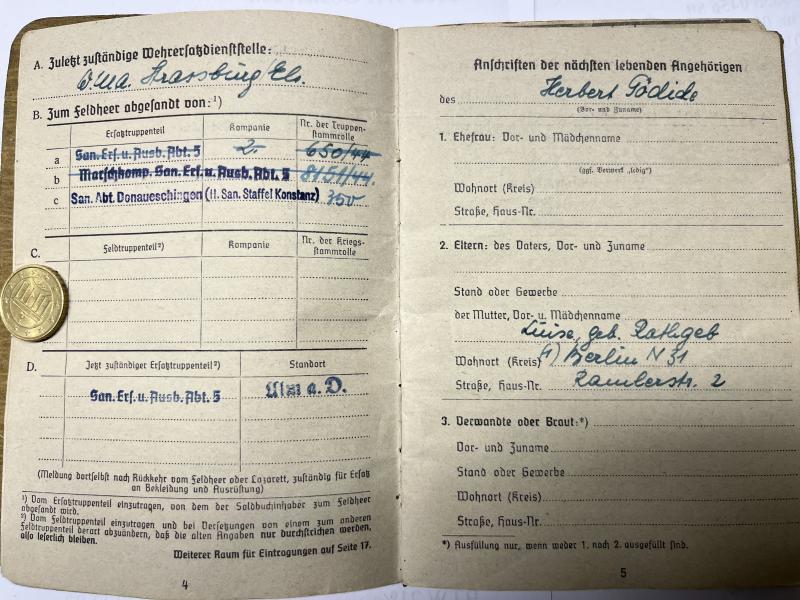 A. Zuletzt zuständige Wehrersatzdienststelle:
W.M.A. Strassburg/Els.
B. Zum Feldheer abgesandt von:¹)
Ersatztruppenteil Kompanie Nr. der Truppen-
stammrolle
a San. Ers. u. Ausb. Abt. 5 2. 650/44
b Marschkomp. San. Ers. u. Ausb. Abt. 5 8151/44.
c San. Abt. Donaueschingen (H. San. Staffel Konstanz) 350
C. Feldtruppenteil²) Kompanie Nr. der Kriegs-
stammrolle
D. Jetzt zuständiger Ersatztruppenteil²) Standort
San. Ers. u. Ausb. Abt. 5 Ulm a. D.
(Meldung dortselbst nach Rückkehr vom Feldheer oder Lazarett, zuständig für Ersatz
an Bekleidung und Ausrüstung)
¹) Vom Ersatztruppenteil einzutragen, von dem der Soldbuchinhaber zum Feldheer
abgesandt wird.
²) Vom Feldtruppenteil einzutragen und bei Versetzungen von einem zum anderen
Feldtruppenteil derart abzuändern, daß die alten Angaben nur durchstrichen werden,
also leserlich bleiben.
Weiterer Raum für Eintragungen auf Seite 17.
4
Anschriften der nächsten lebenden Angehörigen
des Herbert
(Vor- und Zuname)
1. Ehefrau: Vor- und Mädchenname
(ggf. Vermerk „ledig")
Wohnort (Kreis)
Straße, Haus-Nr.
2. Eltern: des Vaters, Vor- und Zuname
Stand oder Gewerbe
der Mutter, Vor- u. Mädchenname
Luise, geb. Rathgeb
Wohnort (Kreis) (1) Berlin N 31
Straße, Haus-Nr. Ramlerstr. 2
3. Verwandte oder Braut:*)
Vor- und Zuname
Stand oder Gewerbe
Wohnort (Kreis)
Straße, Haus-Nr.
*) Ausfüllung nur, wenn weder 1. noch 2. ausgefüllt sind.
5